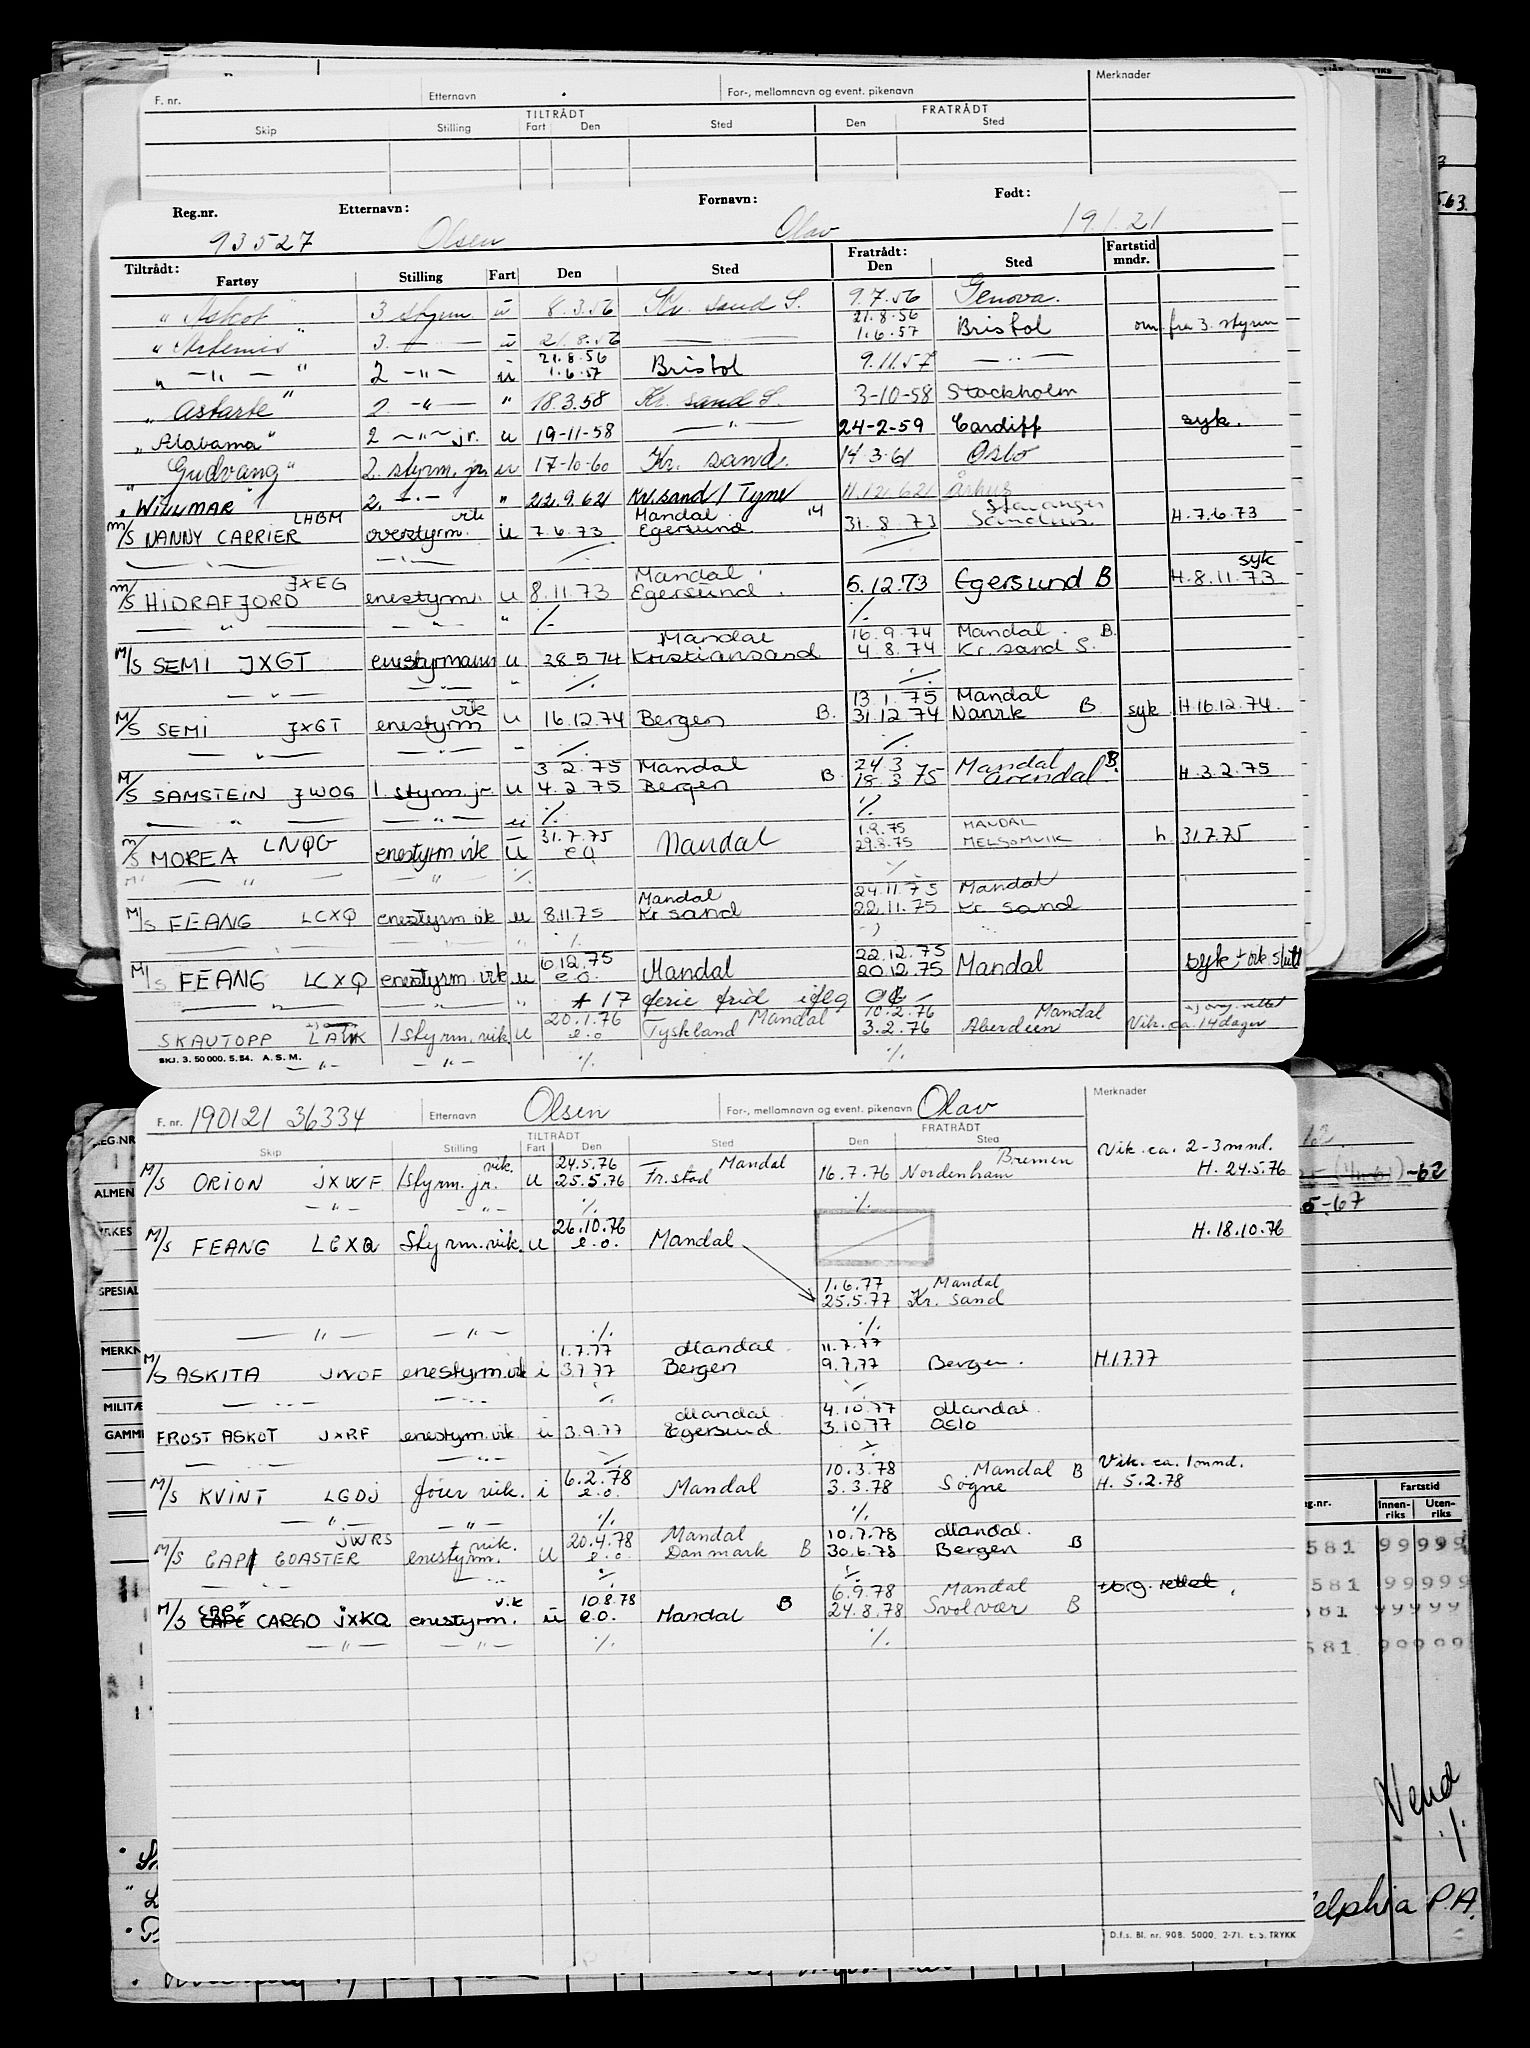 Merknader
F. nr. Etternavn For-, mellomnavn og event. pikenavn
TILTRÅDT FRATRÅDT
Skip Stilling Fart Den Sted Den Sted
Reg.nr. Etternavn: Fornavn: Født:
93527 Olsen Olav 19.1.21
Tiltrådt: Fratrådt: Fartstid
Fartøy Stilling Fart Den Sted Den Sted mndr.
" Askot " 3 styrm u 8.3.56 Kr. sand S. 9.7.56 Genova.
21.8.56
" Artemis " 3. — u 21.8.56 — " — 1.6.57 Bristol om. fra 3. styrm
21.8.56
" — " — " 2 — " — u 1.6.57 Bristol 9.11.57 — " —
" Astarte " 2 — " — " 18.3.58 Kr. sand S. 3-10-58 Stockholm
" Alabama " 2 — " — jr. u 19-11-58 — " — 24-2-59 Cardiff syk.
" Gudvang " 2. styrm. jr. u 17-10-60 Kr. sand. 14.3.61 Oslo
" WILLMAR " 2. — " — " 22.9.62 Kr.sand / Tyne 11.12.62 Århus
LHBM vik Mandal 14 Stavanger
M/S NANNY CARRIER overstyrm. u 7.6.73 Egersund 31.8.73 Sandnes. H.7.6.73
— " —
JXEG Mandal syk
M/S HIDRAFJORD enestyrm. u 8.11.73 Egersund. 5.12.73 Egersund B H.8.11.73
— " — " " ./. ./.
Mandal 16.9.74 Mandal. B.
M/S SEMI JXGT enestyrmann u 28.5.74 Kristiansand 4.8.74 Kr. sand S.
— " — — " — " ./. ./.
vik 13.1.75 Mandal
M/S SEMI JXGT enestyrm u 16.12.74 Bergen B. 31.12.74 Narvik B. syk H.16.12.74.
— " — — " — " ./. ./.
3.2.75 Mandal 24.3 Mandal B.
M/S SAMSTEIN JWOG 1. styrm. jr. u 4.2.75 Bergen B. 18.3.75 Arendal H.3.2.75
— " — — " — u ./. ./.
LNQG 31.7.75 1.9.75 MANDAL
M/S MOREA enestyrm vik u e.o Mandal 29.8.75 MELSOMVIK h. 31.7.75
" " " ./. ./.
Mandal 24.11.75 Mandal
M/S FEANG LCXQ enestyrm vik u 8.11.75 Kr sand 22.11.75 Kr. sand
— " — — " — " ./.
6.12.75 22.12.75
M/S FEANG LCXQ enestyrm. vik u e.o. Mandal 20.12.75 Mandal syk + vik. slutt
— " — — " — " + 17 ferie frid iflg
20.1.76 Mandal 10.2.76 Mandal
SKAUTOPP 1 styrm. vik u e.o Tyskland 3.2.76 Aberdeen Vik. ca. 14 dager
SKJ. 3. 50 000. 5. 54. A. S. M.
— " — — " — ./. ./.
F. nr. 190121 36334 Etternavn Olsen For-, mellomnavn og event. pikenavn Olav Merknader
TILTRÅDT FRATRÅDT
Skip Stilling Fart Den Sted Den Sted
vik. 24.5.76 Mandal Bremen Vik. ca. 2-3 mnd.
M/S ORION JXWF 1styrm. jr. u 25.5.76 Fr.stad 16.7.76 Nordenham H. 24.5.76
— " — — " — ./. ./.
26.10.76
M/S FEANG LCXQ Styrm. vik. u e.o. Mandal H.18.10.76
1.6.77 Mandal
25.5.77 Kr. sand
— " — — " — ./. ./.
1.7.77 Mandal. 11.7.77
M/S ASKITA JWOF enestyrm. vik i 3.7.77 Bergen 9.7.77 Bergen. H.1.7.77
— " — — " — ./. ./.
Mandal 4.10.77 Mandal.
FROST ASKOT JXRF enestyrm. vik. u 3.9.77 Egersund. 3.10.77 OSLO
— " — — " — ./. ./.
6.2.78 10.3.78 Mandal B Vik. ca. 1 mnd.
M/S KVINT LGDJ fører vik. i e.o. Mandal 3.3.78 Søgne H. 5.2.78
— " — — " — ./. ./.
JWRS vik. 20.4.78 Mandal 10.7.78 Mandal.
M/S CAPI COASTER enestyrm. u e.o. Danmark B 30.6.78 Bergen B
— " — — " — ./. ./.
"CAP" vik 10.8.78 6.9.78 Mandal
M/S CAPE CARGO JXKQ enestyrm. u e.o. Mandal B 24.8.78 Svolvær B
— " — — " — ./. ./.
D.f.s. Bl. nr. 90B. 5000. 2-71. E.S. TRYKK
REG.NR
ALMEN
SPESIAL
MERKN
MILITÆ
-62
5-67
Fartstid
Innen-riks Uten-riks
581 99999
581 99999
81 99999
581 99999
Vend
./.
elphia P.A.